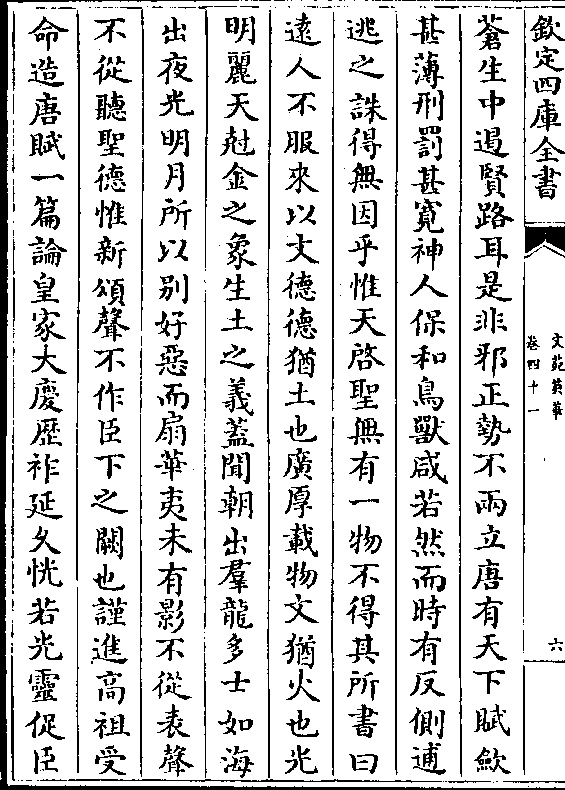 欽定四庫全書
文苑英華
卷四十一
六
蒼生中遏賢路耳是非邪正勢不兩立唐有天下賦歛
甚薄刑罰甚寛神人保和鳥獸咸若然而時有反側逋
逃之誅得無因乎惟天啓聖無有一物不得其所書曰
逺人不服來以文德德猶土也廣厚載物文猶火也光
明麗天尅金之象生土之義蓋聞朝出羣龍多士如海
出夜光明月所以别好惡而扇華夷未有影不從表聲
不從聽聖德惟新頌聲不作臣下之闕也謹進高祖受
命造唐賦一篇論皇家大慶歴祚延乆恍若光靈促臣